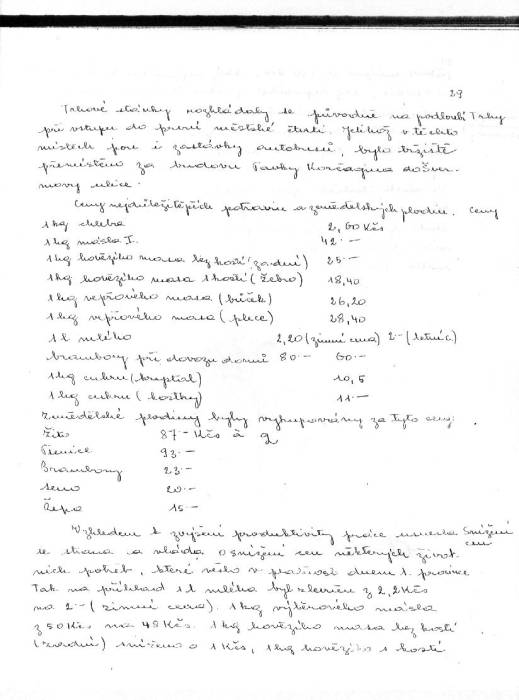 29
Trhové stánky rozkládaly se původně na podloubí Trhy
při vstupu do první městské čtvrti. Jelikož v těchto
místech jsou i zastávky autobusů, bylo tržiště
přemístěno za budovu Pavky Korčagina do Šver-
movy ulice.
Ceny nejdůležitějších potravin a zemědělských plodin. Ceny
1 kg chleba 2,60 Kčs
1 kg másla I. 42.—
1 kg hovězího masa bez kostí (zadní) 25.—
1 kg hovězího masa s kostí (žebro) 18,40
1 kg vepřového masa (bůček) 26,20
1 kg vepřového masa (plece) 28,40
1 l mléka 2,20 (zimní cena) 2.— (letní c.)
brambory při dovozu domů 80.— 60.—
1 kg cukru (krystal) 10,5
1 kg cukru (kostky) 11.—
Zemědělské plodiny byly vykupovány za tyto ceny:
Žito 87.— Kčs à q
Pšenice 93.—
Brambory 23.—
Seno 20.—
Řepa 15.—
Vzhledem k zvýšení produktivity práce usnesla Snížení
se strana a vláda o snížení cen některých život cen
ních potřeb, které vešlo v platnost dnem 1. prosince
Tak na příklad 1 l mléka byl zlevněn z 2,2 Kčs
na 2.— (zimní cena). 1 kg výběrového másla
z 50 Kčs na 48 Kčs. 1 kg hovězího masa bez kostí
(zadní) sníženo o 1 Kčs, 1 kg hovězího s kostí